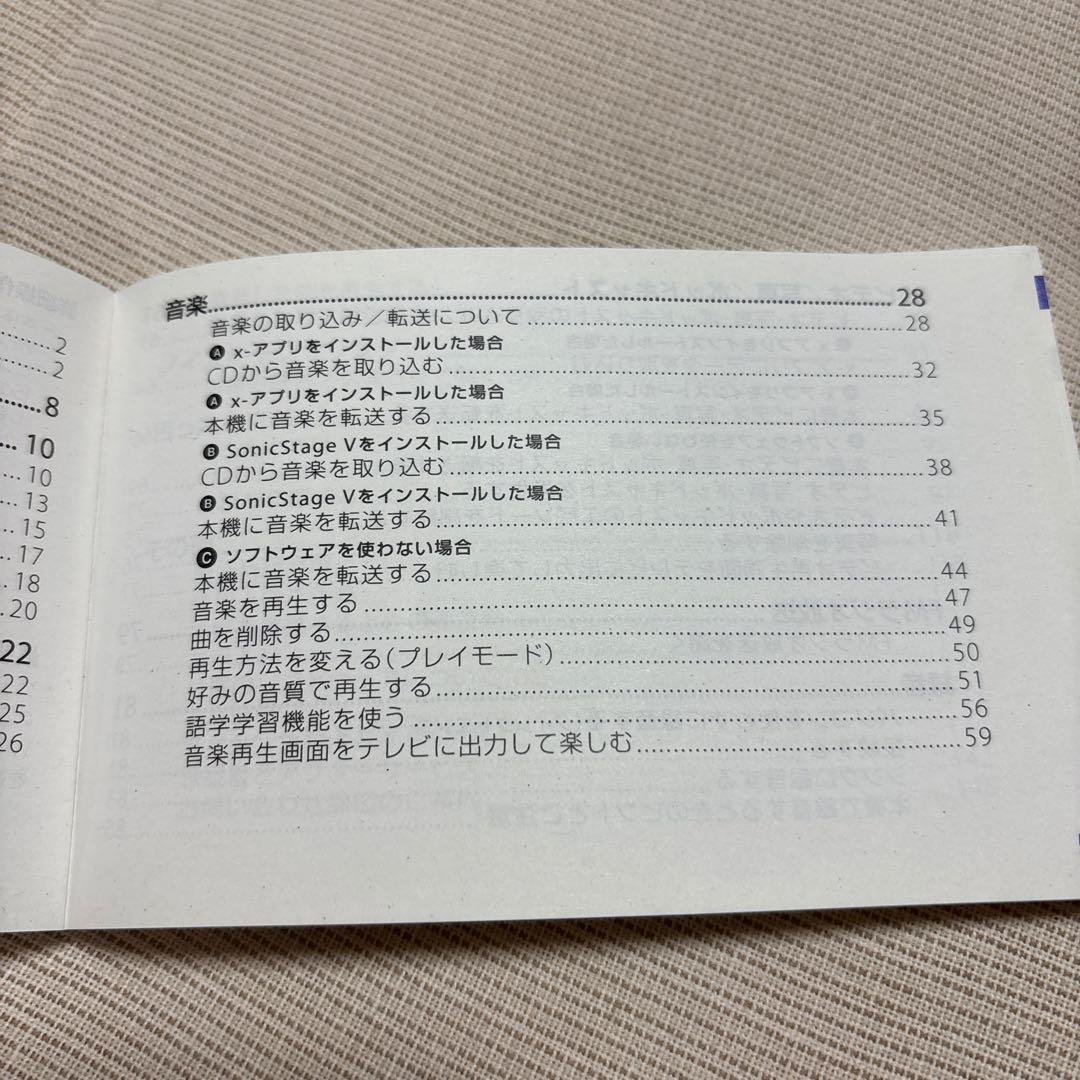 2
2
8
10
10
13
15
17
18
20
22
22
25
26
音楽 28
音楽の取り込み／転送について 28
A x-アプリをインストールした場合
CDから音楽を取り込む 32
A x-アプリをインストールした場合
本機に音楽を転送する 35
B SonicStage Vをインストールした場合
CDから音楽を取り込む 38
B SonicStage Vをインストールした場合
本機に音楽を転送する 41
C ソフトウェアを使わない場合
本機に音楽を転送する 44
音楽を再生する 47
曲を削除する 49
再生方法を変える（プレイモード） 50
好みの音質で再生する 51
語学学習機能を使う 56
音楽再生画面をテレビに出力して楽しむ 59